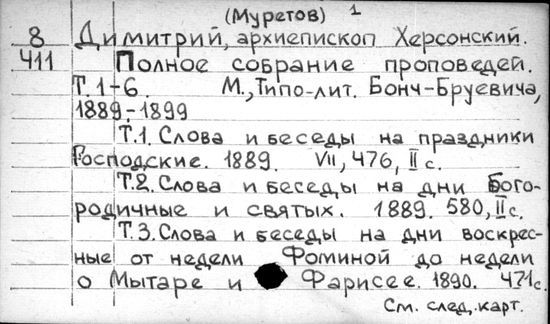 (Муретов) 1
8 Димитрий, архиепископ Херсонский.
411 Полное собрание проповедей.
Т.1-6. М., Типо-лит. Бонч-Бруевича,
1889-1899
Т.1. Слова и беседы на праздники
Господские. 1889. VII, 476, II с.
Т.2. Слова и беседы на дни Бого-
родичные и святых. 1889. 580, II с.
Т.3. Слова и беседы на дни воскрес-
ные от недели Фоминой до недели
о Мытаре и Фарисее. 1890. 471с.
См. след. карт.